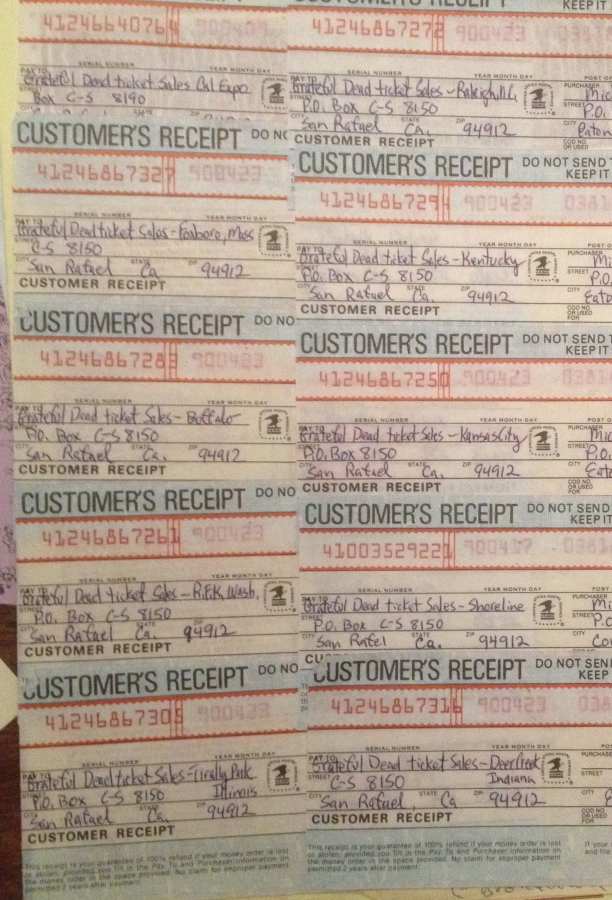 41246640764
SERIAL NUMBER YEAR MONTH DAY
PAY TO Grateful Dead ticket Sales Cal Expo
Box C-S 8190
CUSTOMER'S RECEIPT DO NO
41246867327 900423
SERIAL NUMBER YEAR MONTH DAY
PAY TO Grateful Dead ticket Sales - Foxboro, Mas
C-S 8150
CITY San Rafael STATE Ca ZIP 94912
CUSTOMER RECEIPT
CUSTOMER'S RECEIPT DO NO
41246867283 900423
SERIAL NUMBER YEAR MONTH DAY
PAY TO Grateful Dead ticket Sales - Buffalo
P.O. Box C-S 8150
CITY San Rafael STATE Ca. ZIP 94912
CUSTOMER RECEIPT
CUSTOMER'S RECEIPT DO NO
41246867261 900423
SERIAL NUMBER YEAR MONTH DAY
PAY TO Grateful Dead ticket Sales - R.F.K, Wash,
STREET P.O. Box C-S 8150
CITY San Rafael STATE Ca. ZIP 94912
CUSTOMER RECEIPT
CUSTOMER'S RECEIPT DO NO
41246867305 900423
SERIAL NUMBER YEAR MONTH DAY
PAY TO Grateful Dead ticket Sales - Tinally Park
Illinois
STREET P.O. Box C-S 8150
CITY San Rafael STATE Ca. ZIP 94912
CUSTOMER RECEIPT
This receipt is your guarantee of 100% refund if your money order is lost
or stolen, provided you fill in the Pay To and Purchaser information on
the money order in the space provided. No claim for improper payment
permitted 2 years after payment.
KEEP IT
41246867272 900423 0381
SERIAL NUMBER YEAR MONTH DAY POST OF
PAY TO Grateful Dead ticket Sales - Raleigh, N.C. PURCHASER Mic
STREET P.O. Box C-S 8150 STREET P.O.
CITY San Rafael STATE Ca. ZIP 94912 CITY
CUSTOMER RECEIPT COD NO. OR USED
CUSTOMER'S RECEIPT DO NOT SEND T
KEEP IT
41246867294 900423 0381
SERIAL NUMBER YEAR MONTH DAY POST O
PAY TO Grateful Dead ticket Sales - Kentucky PURCHASER Mi
P.O. Box C-S 8150 STREET P.O.
CITY San Rafael STATE Ca. ZIP 94912 CITY Eat
CUSTOMER RECEIPT COD NO. OR USED FOR
CUSTOMER'S RECEIPT DO NOT SEND T
KEEP IT
41246867250 900423 0381
SERIAL NUMBER YEAR MONTH DAY POST O
PAY TO Grateful Dead ticket Sales - Kansas City PURCHASER Mic
P.O. Box 8150 STREET P.O.
CITY San Rafael STATE Ca. ZIP 94912 CITY Eato
CUSTOMER RECEIPT COD NO. OR USED FOR
CUSTOMER'S RECEIPT DO NOT SEND
KEEP IT
41003529221 900417 0381
SERIAL NUMBER YEAR MONTH DAY POST
PAY TO Grateful Dead ticket Sales - Shoreline PURCHASER
STREET P.O. Box C-S 8150 STREET P.O
CITY San Rafel STATE Ca. ZIP 94912 CITY Co
CU
CUSTOMER'S RECEIPT DO NOT SEN
KEEP
41246867316 900423 038
SERIAL NUMBER YEAR MONTH DAY POS
PAY TO Grateful Dead ticket Sales - Deer Creek PURCHASE
Indiana
STREET C-S 8150 STREET
CITY San Rafael, STATE Ca ZIP 94912 CITY
CUSTOMER RECEIPT COD NO. OR USED FOR
This receipt is your guarantee of 100% refund if your money order is lost If your
or stolen, provided you fill in the Pay To and Purchaser information on and the
the money order in the space provided. No claim for improper payment
permitted 2 years after payment.